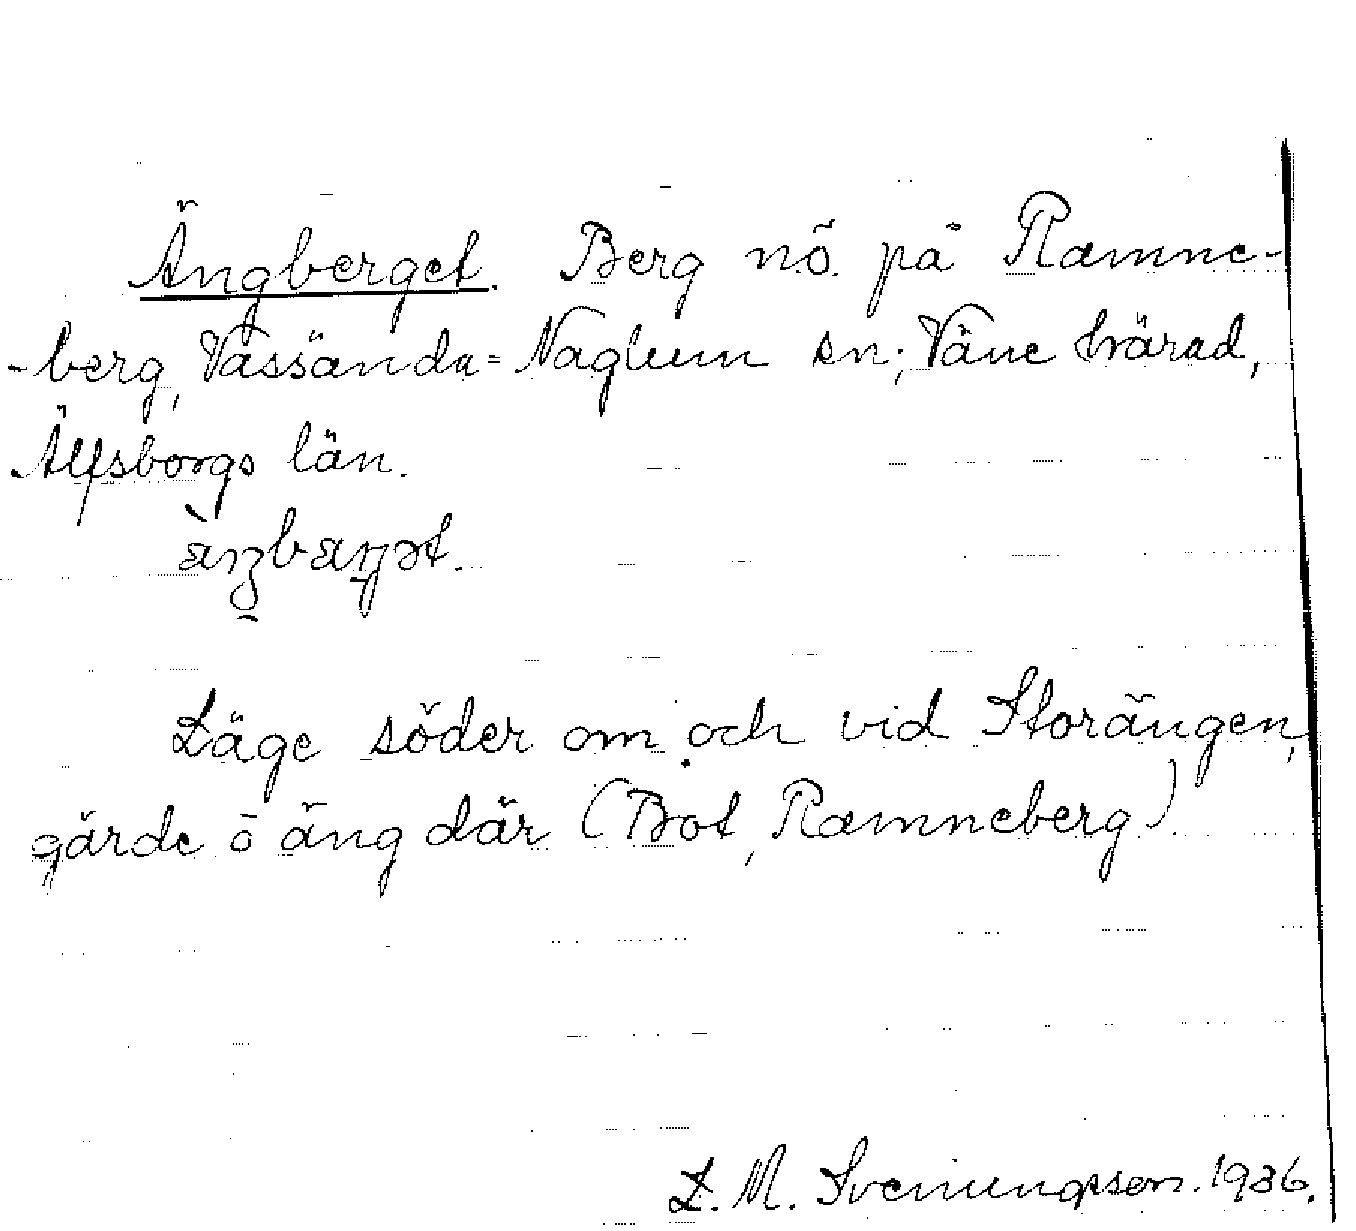 Ängberget. Berg nö. på Ramne-
-berg, Vassända=Naglum sn; Väne härad,
Älfsborgs län.
Läge söder om och vid Storängen,
gärde o äng där (Bot, Ramneberg).
L. M. Svenungsson. 1936.